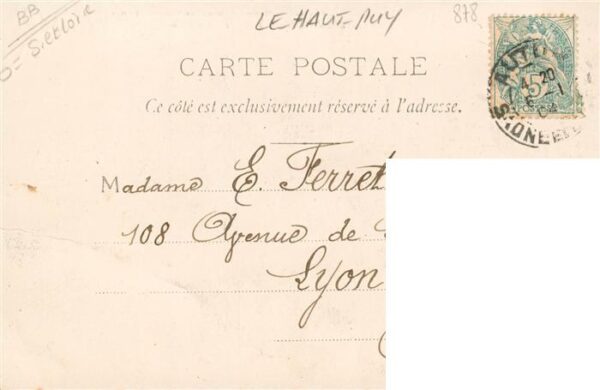 BB
LE HAUT-PUY
878
CARTE POSTALE
Ce côté est exclusivement réservé à l'adresse.
Madame E. Ferret
108 Avenue de
Lyon